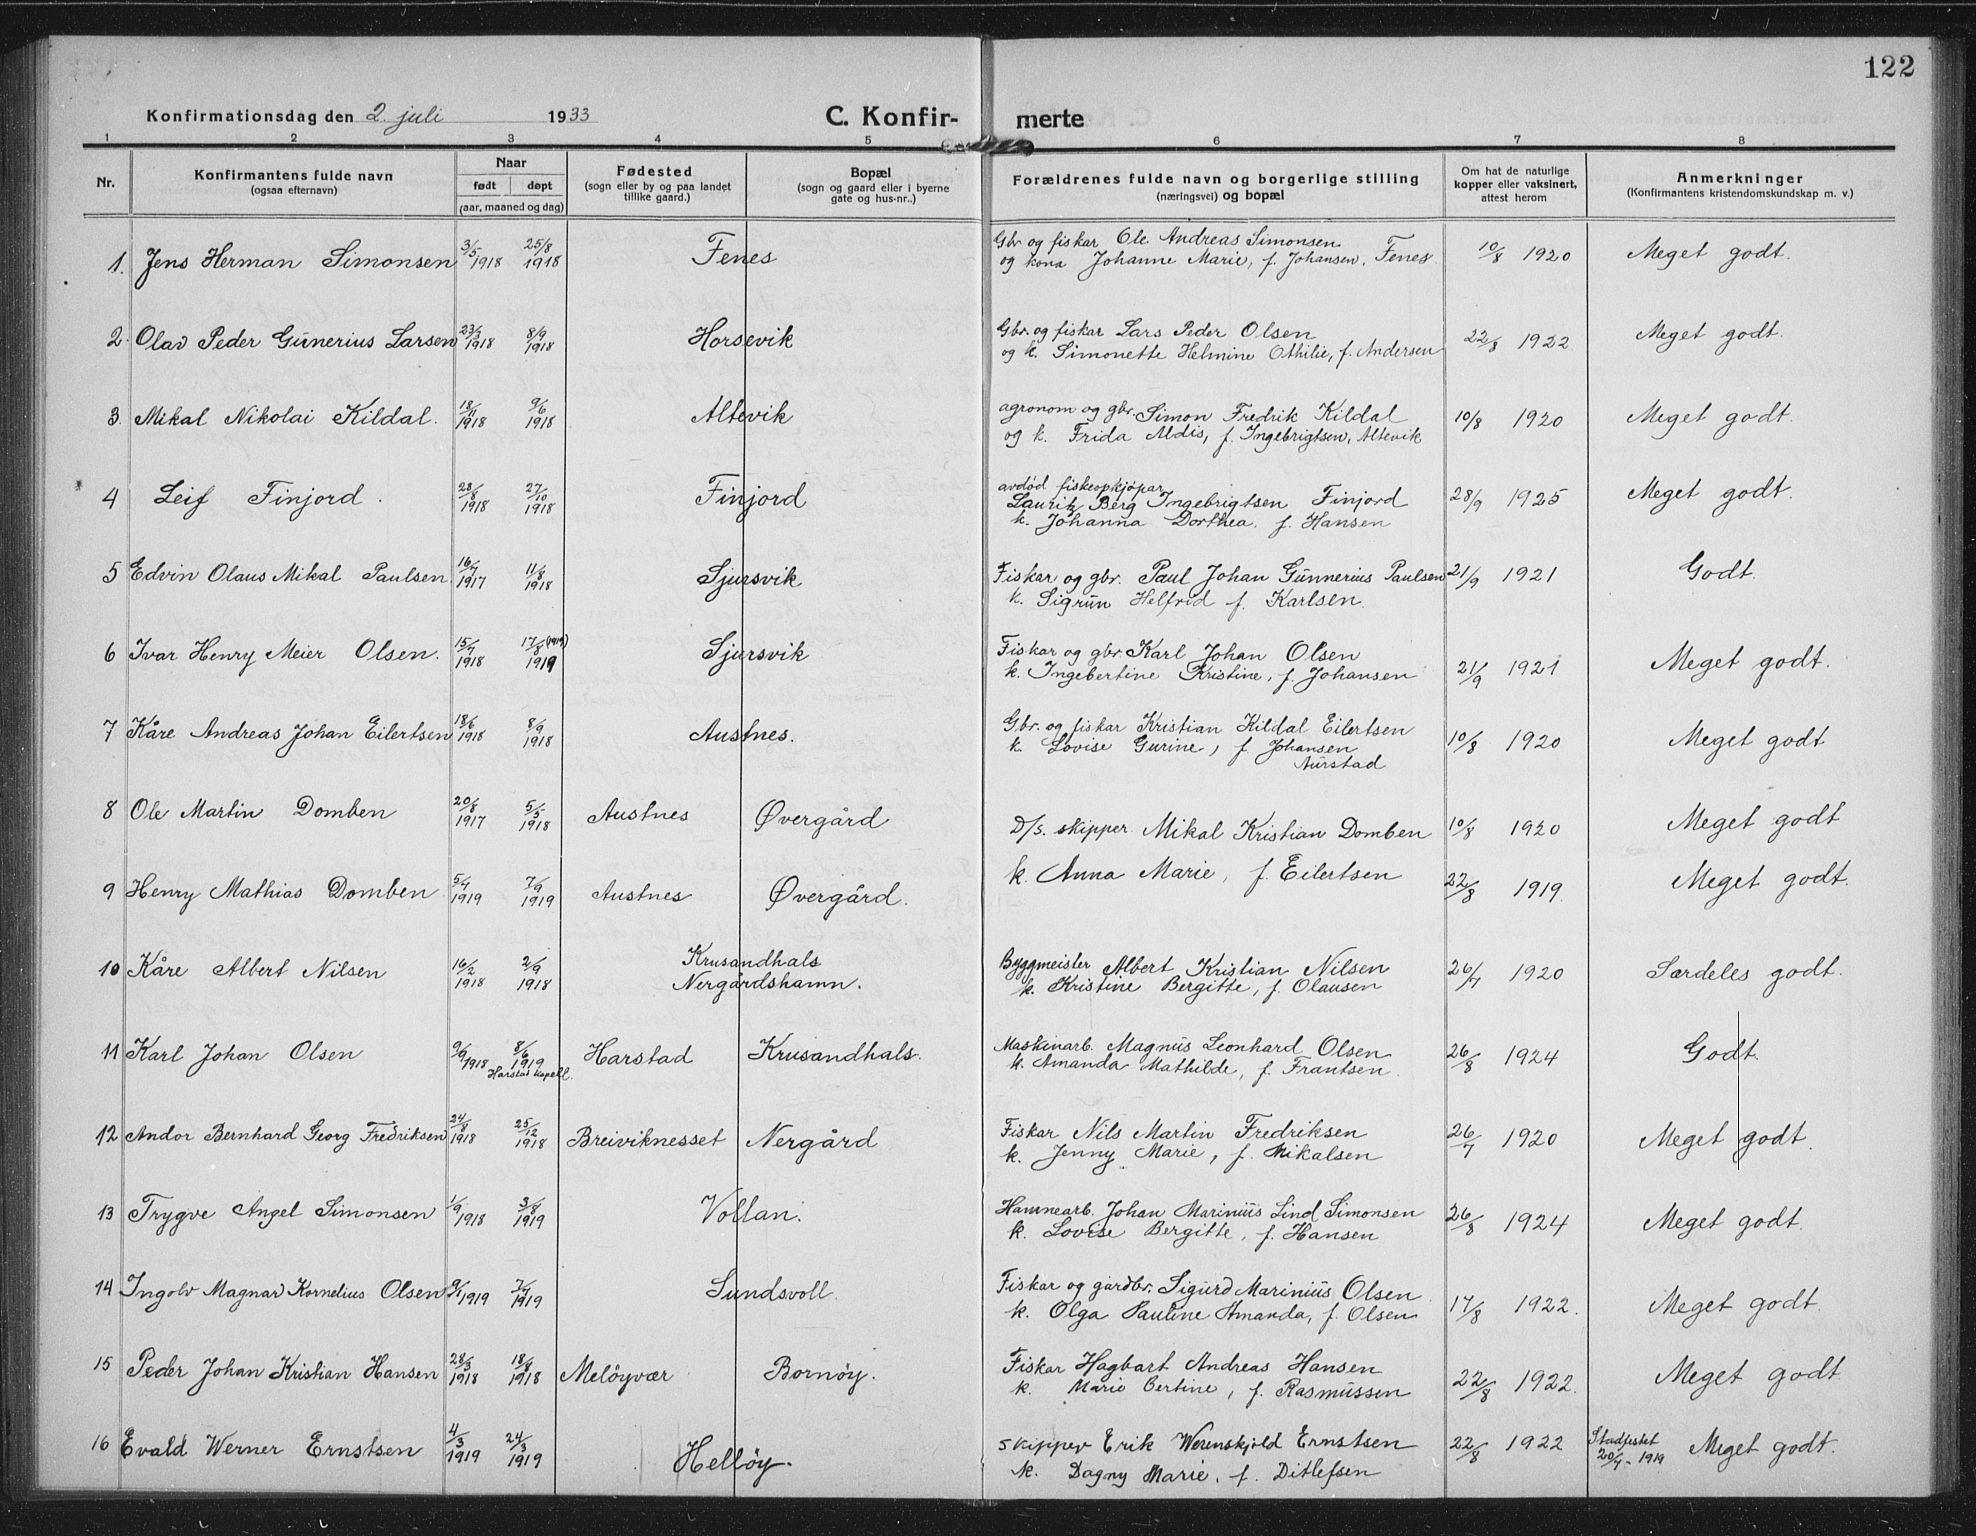 122
Konfirmationsdag den 2. juli 1933
C. Konfir- merte
1 2 3 4 5 6 7 8
Nr.
Konfirmantens fulde navn
(ogsaa efternavn)
Naar
født døpt
(aar, maaned og dag)
Fødested
(sogn eller by og paa landet
tillike gaard.)
Bopæl
(sogn og gaard eller i byerne
gate og hus-nr..)
Forældrenes fulde navn og borgerlige stilling
(næringsvei) og bopæl
Om hat de naturlige
kopper eller vaksinert,
attest herom
Anmerkninger
(Konfirmantens kristendomskundskap m. v.)
1. Jens Herman Simonsen 3/5 1918 25/8 1918 Fenes
Gbr. og fiskar Ole Andreas Simonsen
og kona Johanne Marie, f. Johansen, Fenes
10/8 1920 Meget godt.
2. Olav Peder Gunerius Larsen 1918 8/9 1918 Horsevik
Gbr. og fiskar Lars Peder Olsen
og k. Simonette Helmine Othilie, f. Andersen
22/8 1922 Meget godt.
3. Mikal Nikolai Kildal. 1918 9/6 1918 Altevik
agronom og gbr. Simon Fredrik Kildal
og k. Frida Aldis, f. Ingebrigtsen, Altevik
10/8 1920 Meget godt.
4 Leif Finjord. 28/8 1918 27/10 1918 Finjord
avdød fiskeopkjøpar
Lauritz Berg Ingebrigtsen Finjord
k. Johanna Dorthea, f. Hansen
28/9 1925 Meget godt.
5 Edvin Olaus Mikal Paulsen 16/7 1917 11/8 1918 Sjursvik
Fiskar og gbr. Paul Johan Gunnerius Paulsen
k. Sigrun Helfrid f. Karlsen.
21/9 1921 Godt.
6 Ivar Henry Meier Olsen. 15/7 1918 17/8 (1919) 1919 Sjursvik
Fiskar og gbr Karl Johan Olsen
k. Ingebertine Kristine, f. Johansen
21/9 1921 Meget godt.
7 Kåre Andreas Johan Eilertsen 18/6 1918 8/9 1918 Austnes.
Gbr. og fiskar Kristian Kildal Eilertsen
k. Lovise Gurine, f. Johansen
Aurstad
10/8 1920 Meget godt
8 Ole Martin Domben 20/8 1917 5/5 1918 Austnes Øvergård
D/s. skipper Mikal Kristian Domben
10/8 1920 Meget godt
9 Henry Mathias Domben 5/7 1919 7/9 1919 Austnes Øvergård.
k. Anna Marie, f. Eilertsen
22/8 1919. Meget godt.
10 Kåre Albert Nilsen 16/2 1918 2/9 1918 Krusandhals
Nergårdshamn.
Byggmeister Albert Kristian Nilsen
k. Kristine Bergitte, f. Olausen
26/7 1920 Særdeles godt.
11 Karl Johan Olsen 9/9 1918 8/6 1919 Harstad kapell. Harstad Krusandhals.
Maskinarb. Magnus Leonhard Olsen
k. Amanda Mathilde, f. Frantsen.
26/8 1924 Godt.
12 Andor Bernhard Georg Fredriksen 24/8 1918 25/12 1918 Breiviknesset Nergård
Fiskar Nils Martin Fredriksen
k. Jenny Marie, f. Mikalsen
26/7 1920 Meget godt.
13 Trygve Angel Simonsen 1/9 1918 3/8 1919 Vollan.
Hamnearb. Johan Marinius Lind Simonsen
k. Lovise Bergitte, f. Hansen
26/8 1924 Meget godt.
14 Ingolv Magnar Kornelius Olsen 9/1 1919 1919 Sundsvoll.
Fiskar og gardbr. Sigurd Marinius Olsen
k. Olga Pauline Amanda, f. Olsen
17/8 1922. Meget godt.
15 Peder Johan Kristian Hansen 28/3 1918 18/8 1918 Meløyvær Bornøy.
Fiskar Hagbart Andreas Hansen
k. Marie Bertine, f. Rasmussen
22/8 1922. Meget godt
16 Evald Werner Ernstsen 4/3 1919 24/3 1919 Helløy.
skipper Erik Werenskjold Ernstsen
k. Dagny Marie, f. Ditlefsen
22/8 1922 Stadfestet
20/4 - 1919 Meget godt.